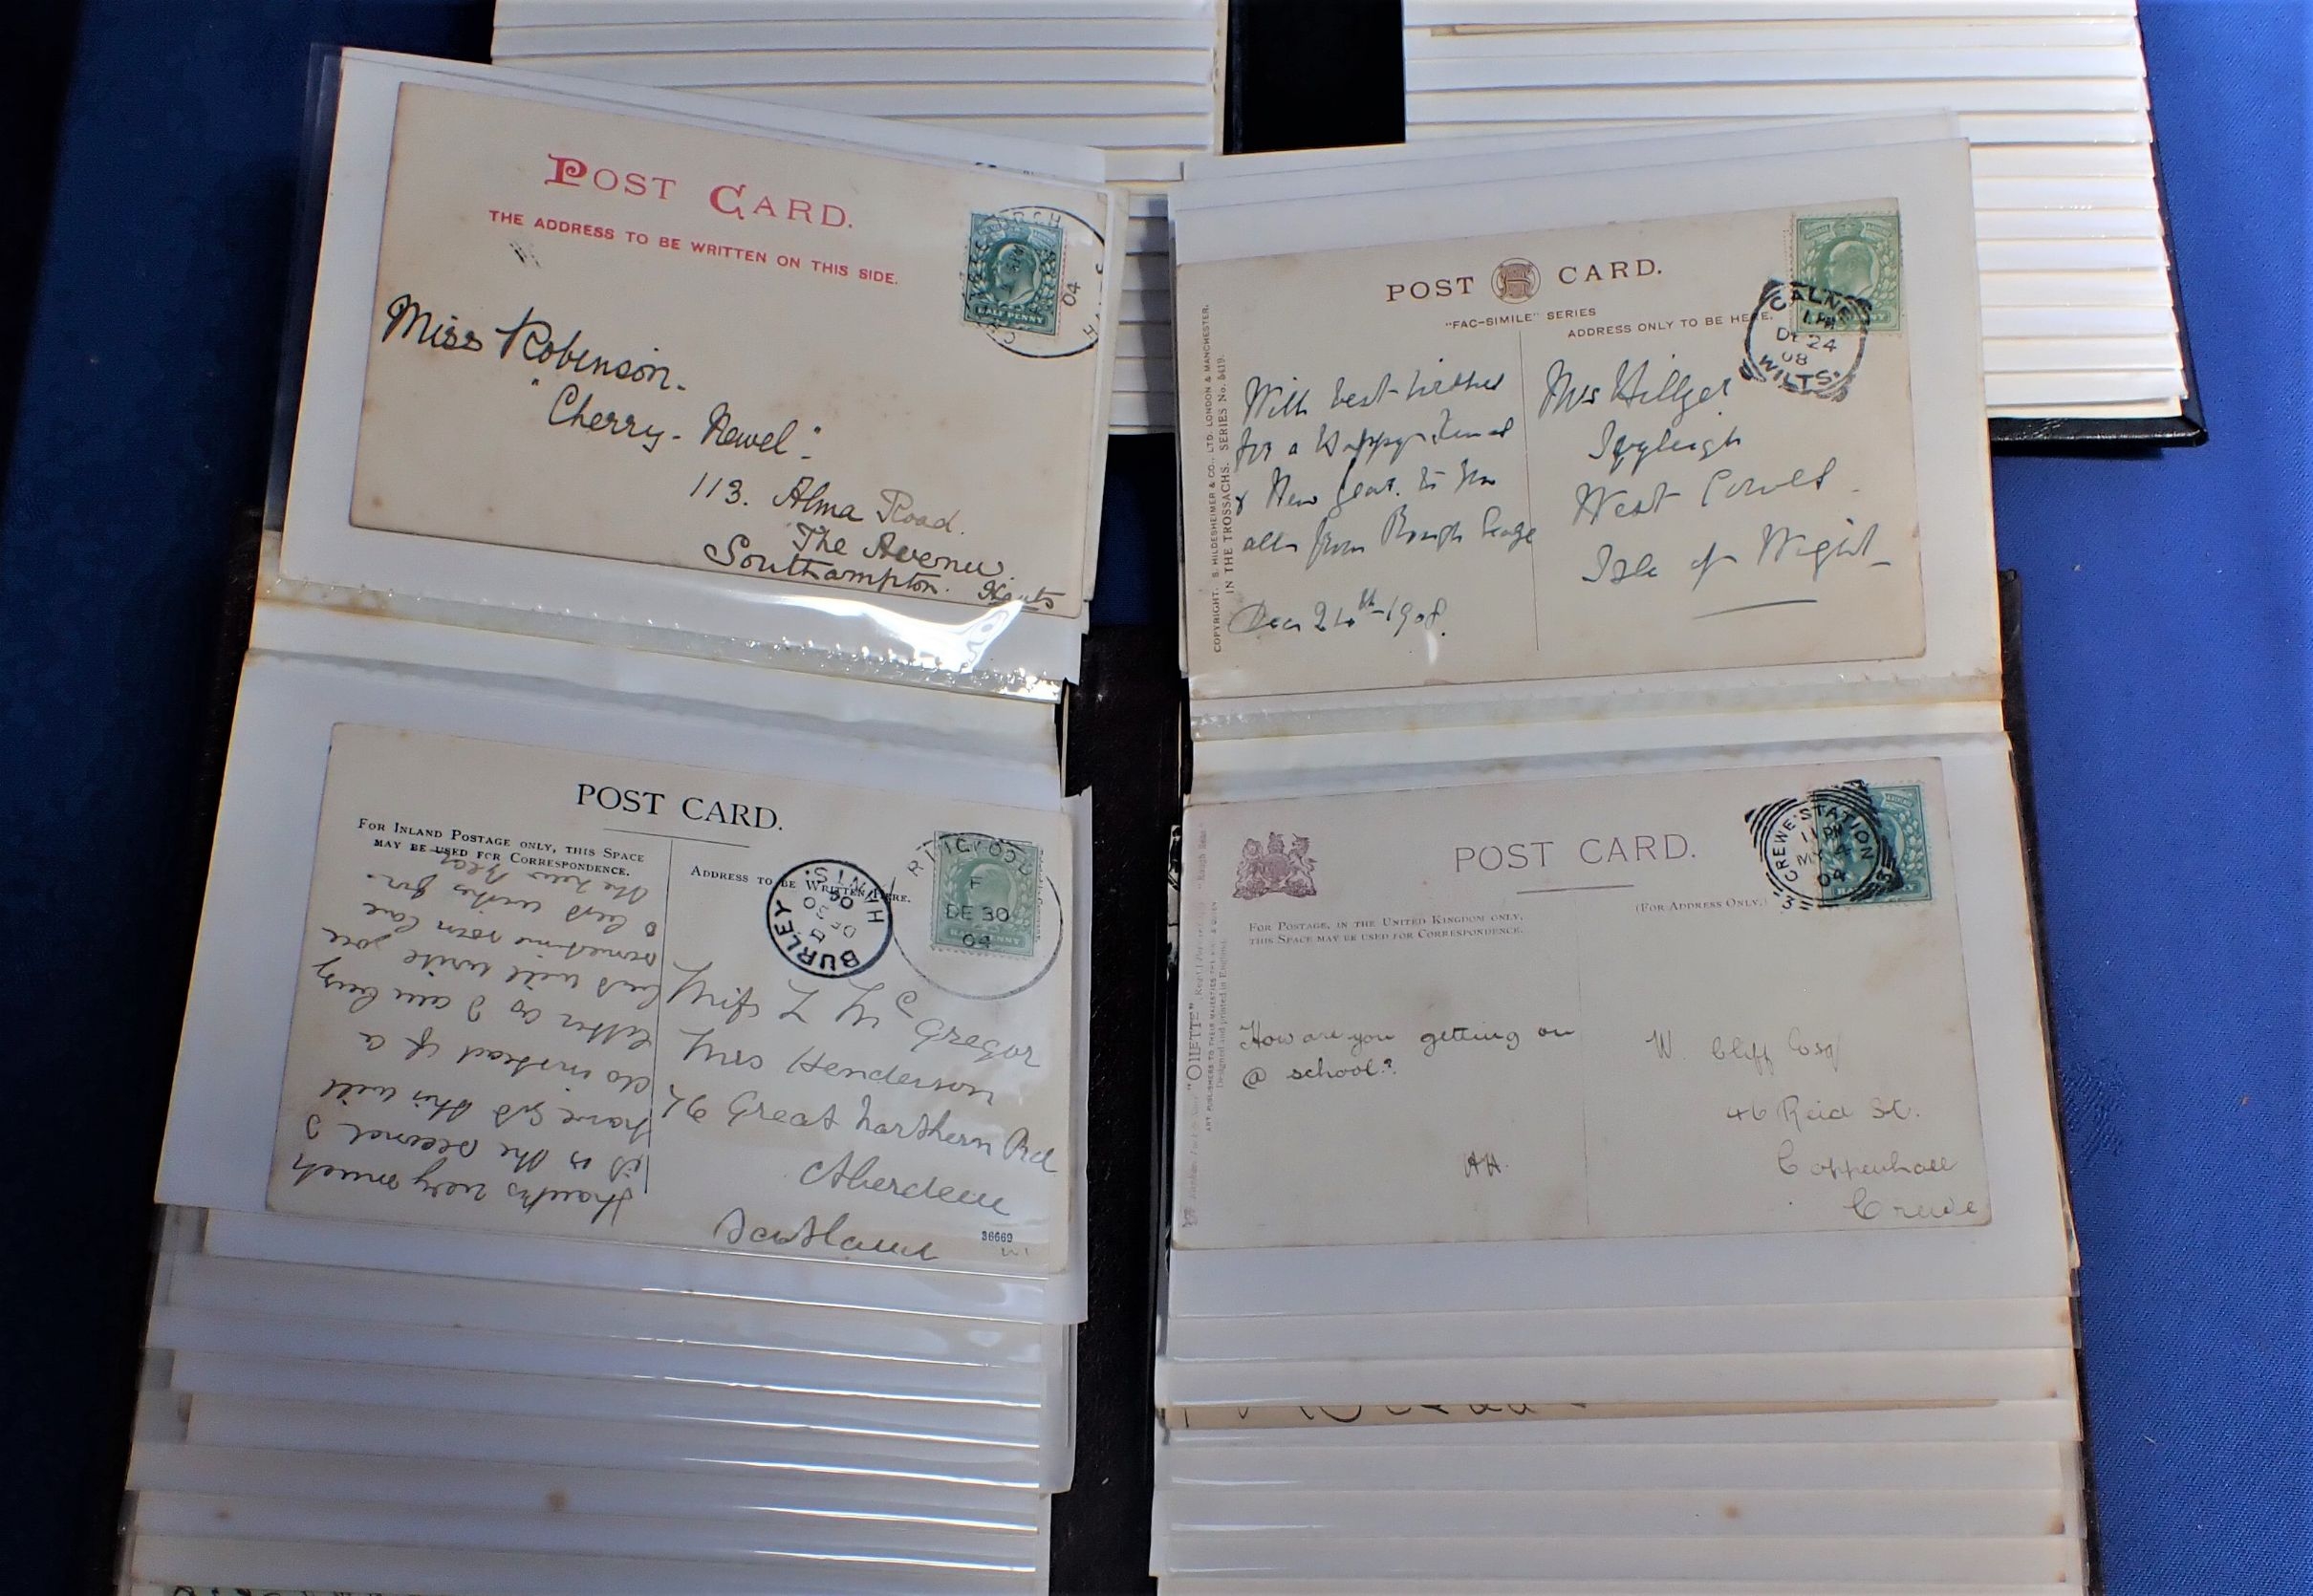 POST CARD.
THE ADDRESS TO BE WRITTEN ON THIS SIDE.
HALF PENNY
04
Miss Robinson.
"Cherry - Newel".
113. Alma Road.
The Avenue.
Southampton. Hants
POST CARD.
"FAC-SIMILE" SERIES
ADDRESS ONLY TO BE HERE.
CALNE
1 PM
DE 24
08
WILTS.
COPYRIGHT. S. HILDESHEIMER & CO., LTD. LONDON & MANCHESTER.
IN THE TROSSACHS. SERIES No. 5419.
With best wishes
for a Happy Xmas
& New Year. to you
all from
Dec 24th 1908.
Mrs Hillyer
West Cowes
Isle of Wight
POST CARD.
FOR INLAND POSTAGE ONLY, THIS SPACE
MAY BE USED FOR CORRESPONDENCE.
ADDRESS TO BE WRITTEN HERE.
BURLEY
DE 30
04
HANTS.
RINGWOOD
F
DE 30
04
Thanks very much
it is the second I
have got this will
do instead of a
letter as I am busy
but will write you
sometime soon love
& best wishes for
the New Year
Miss L M J Gregor
c/o Mrs Henderson
76 Great Northern Rd
Aberdeen
Scotland
36669
POST CARD.
(FOR ADDRESS ONLY.)
CREWE-STATION
11 PM
MY 4
04
FOR POSTAGE, IN THE UNITED KINGDOM ONLY,
THIS SPACE MAY BE USED FOR CORRESPONDENCE.
"OILETTE"
ART PUBLISHERS TO THEIR MAJESTIES THE KING & QUEEN
Designed and printed in England.
How are you getting on
@ school?
AH.
W. Cliff Esq
46 Reid St.
Coppenhall
Crewe